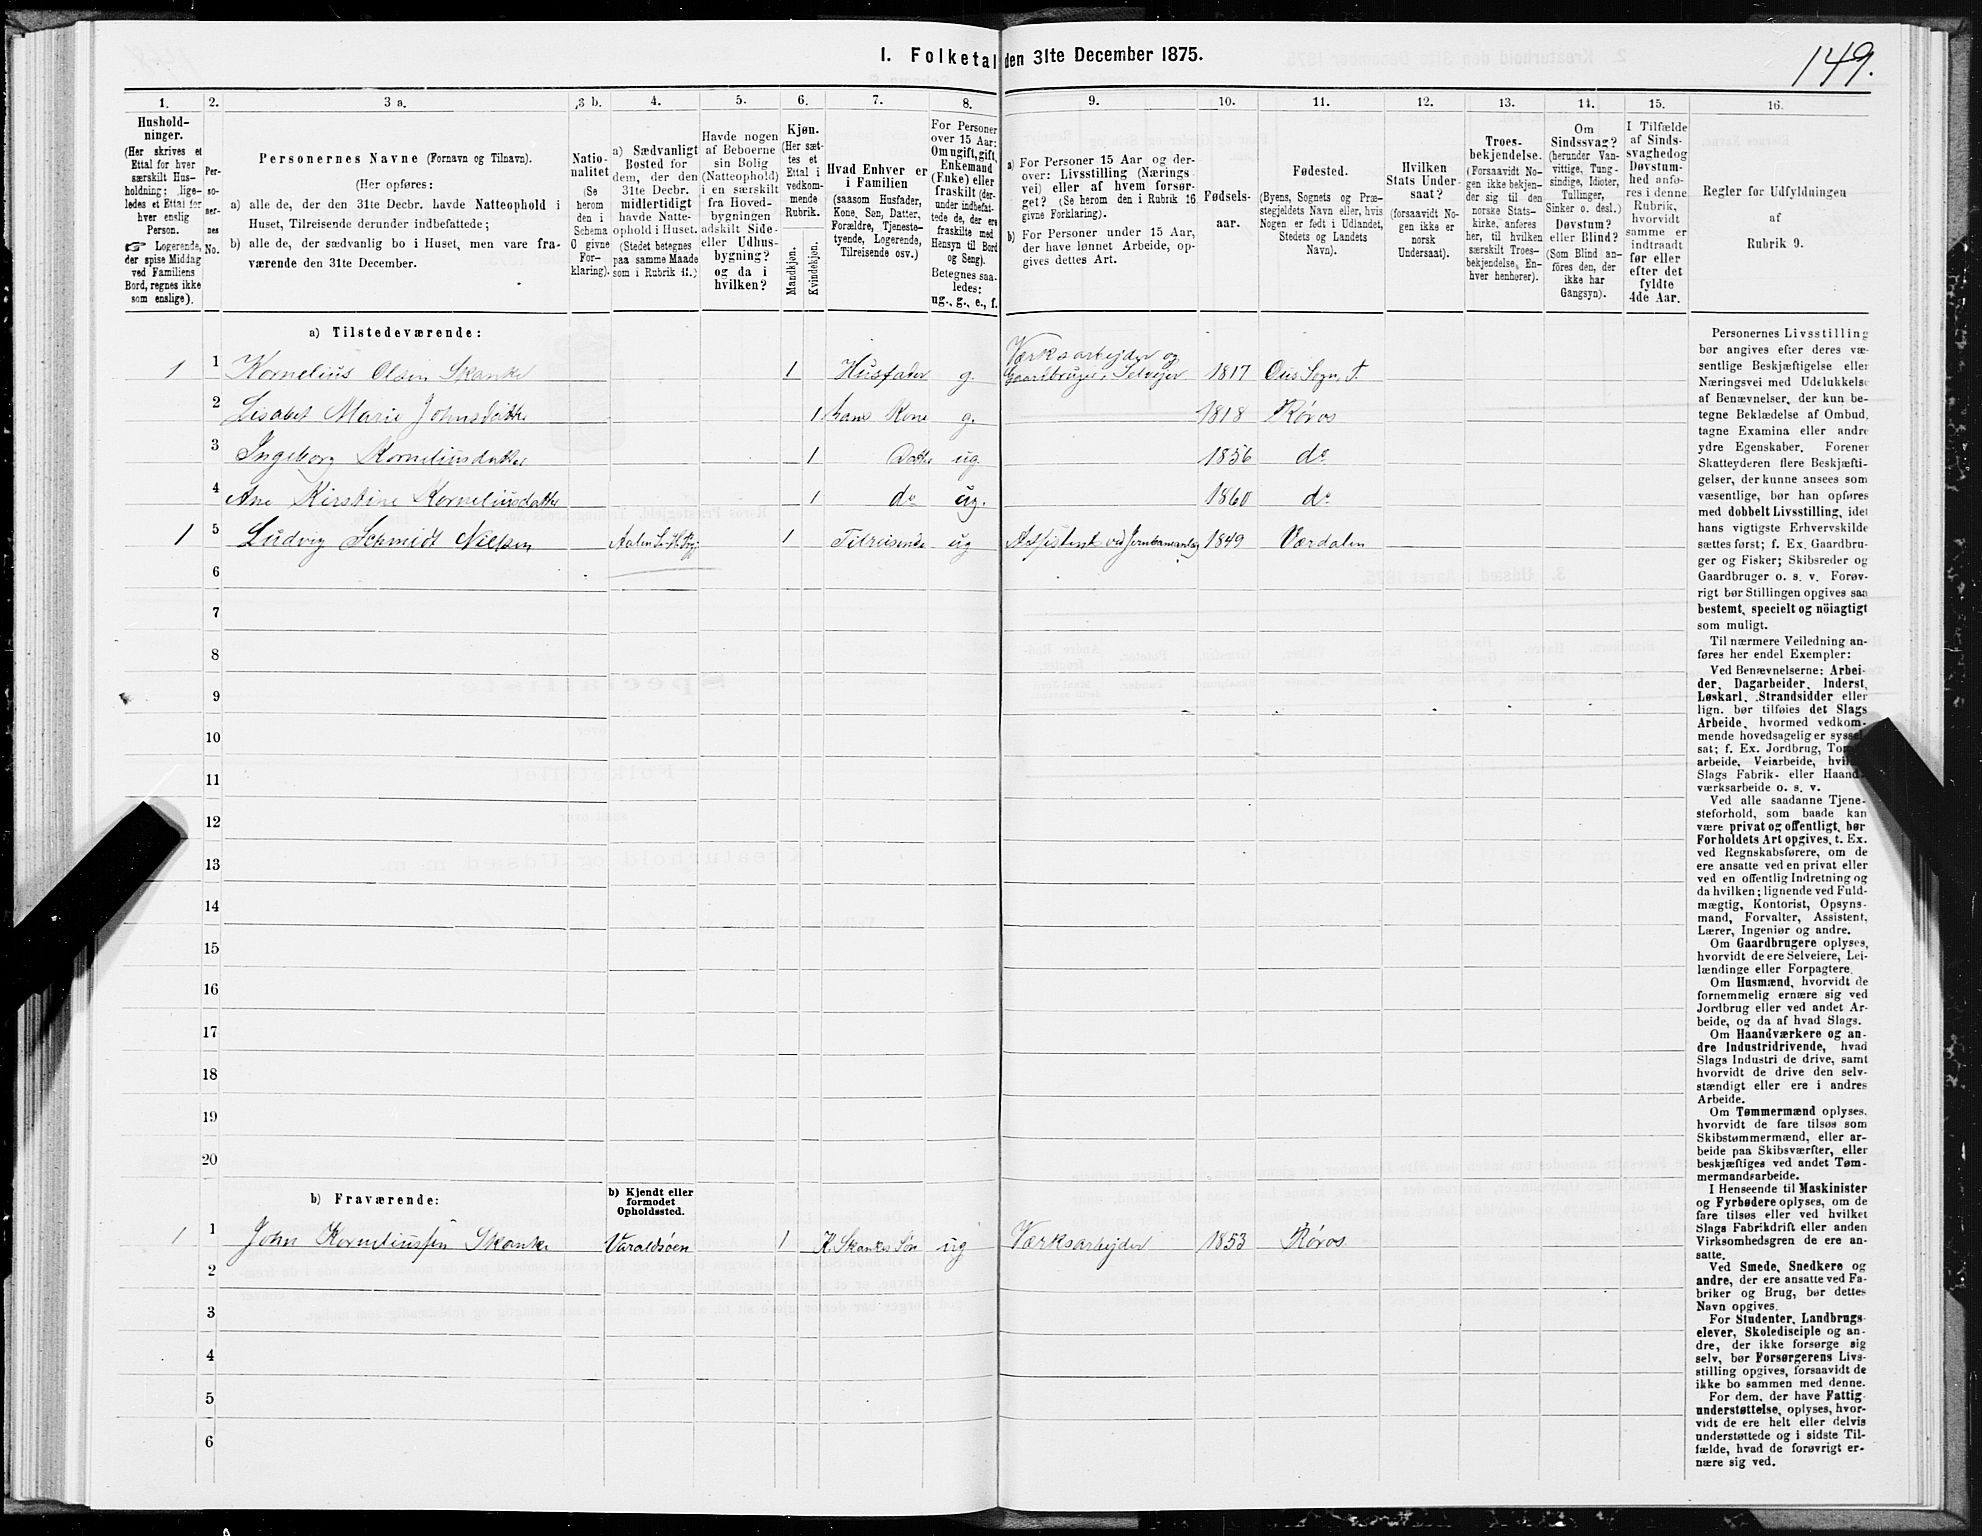 149.
1. Folketal den 31te December 1875.
1.
2.
3 a.
3 b.
4.
5.
6.
7.
8.
9.
10.
11.
12.
13.
14.
15.
16.
Hushold-
ninger.
(Her skrives et
Ettal for hver
særskilt Hus-
holdning; lige-
ledes et Ettal for
hver enslig
Person.
☞ Logerende,
der spise Middag
ved Familiens
Bord, regnes ikke
som enslige).
Per-
so-
ner-
nes
No.
Personernes Navne (Fornavn og Tilnavn).
(Her opføres:
a) alle de, der den 31te Decbr. havde Natteophold i
Huset, Tilreisende derunder indbefattede;
b) alle de, der sædvanlig bo i Huset, men vare fra-
værende den 31te December.
Natio-
nalitet
(Se
herom
den i
Schema
C givne
For-
klaring).
a) Sædvanligt
Bosted for
dem, der den
31te Decbr.
midlertidigt
havde Natte-
ophold i Huset.
(Stedet betegnes
paa samme Maade
som i Rubrik 11.)
Havde nogen
af Beboerne
sin Bolig
(Natteophold)
i en særskilt
fra Hoved-
bygningen
adskilt Side-
eller Udhus-
bygning?
og da i
hvilken?
Kjøn.
(Her sæt-
tes et
Ettal i
vedkom-
mende
Rubrik.
Mandkjøn.
Kvindekjøn.
Hvad Enhver er
i Familien
(saasom Husfader,
Kone, Søn, Datter,
Forældre, Tjeneste-
tyende, Logerende,
Tilreisende osv.)
For Personer
over 15 Aar:
Om ugift, gift,
Enkemand
(Enke) eller
fraskilt (der-
under indbefat-
tede de, der ere
fraskilte med
Hensyn til Bord
og Seng).
Betegnes saa-
ledes:
ug., g., e., f.
a) For Personer 15 Aar og der-
over: Livsstilling (Nærings-
vei) eller af hvem forsør-
get? (Se herom den i Rubrik 16
givne Forklaring).
b) For Personer under 15 Aar,
der have lønnet Arbeide, op-
gives dettes Art.
Fødsels-
aar.
Fødested.
(Byens, Sognets og Præ-
stegjeldets Navn eller, hvis
Nogen er født i Udlandet,
Stedets og Landets
Navn).
Hvilken
Stats Under-
saat?
(forsaavidt No-
gen ikke er
norsk
Undersaat).
Troes-
bekjendelse.
(Forsaavidt No-
gen ikke bekjen-
der sig til den
norske Stats-
kirke, anføres
her, til hvilken
særskilt Troes-
bekjendelse, En-
hver henhører).
Om
Sindssvag?
(herunder Van-
vittige, Tung-
sindige, Idioter,
Tullinger,
Sinker o. desl.)
Døvstum?
eller Blind?
(Som Blind an-
føres den, der
ikke har
Gangsyn).
I Tilfælde
af Sinds-
svaghed og
Døvstum-
hed anfø-
res i denne
Rubrik,
hvorvidt
samme er
indtraadt
før eller
efter det
fyldte
4de Aar.
Regler for Udfyldningen
af
Rubrik 9.
a) Tilstedeværende:
1 1 Kornelius Olsen Skanke 1 Husfader g. Værksarbejder og Gaardbruger, Selveier 1817 Aus Sogn
2 Lisabet Marie Johnsdatter 1 hans Kone g. 1818 Røros
3 Ingeborg Korneliusdatter 1 Datter ug. 1856 do
4 Ane Kirstine Korneliusdatter 1 do ug. 1860 do
1 5 Ludvig Schmidt Nielsen Aalen 1 Tilreisende ug Assistent ved Jernbaneanlæg 1849 Værdalen
6
7
8
9
10
11
12
13
14
15
16
17
18
19
20
b) Fraværende:
b) Kjendt eller
formodet
Opholdssted.
1 1 John Korneliussen Skanke Varaldsøen 1 K. Skankes Søn ug Værksarbejder 1853 Røros.
2
3
4
5
6
Personernes Livsstilling
bør angives efter deres væ-
sentlige Beskjæftigelse eller
Næringsvei med Udelukkelse
af Benævnelser, der kun be-
tegne Beklædelse af Ombud,
tagne Examina eller andre
ydre Egenskaber. Forener
Skatteyderen flere Beskjæfti-
gelser, der kunne ansees som
væsentlige, bør han opføres
med dobbelt Livsstilling, idet
hans vigtigste Erhvervskilde
sættes først; f. Ex. Gaardbru-
ger og Fisker; Skibsreder og
Gaardbruger o. s. v. Forøv-
rigt bør Stillingen opgives saa
bestemt, specielt og nöiagtigt
som muligt.
Til nærmere Veiledning an-
føres her endel Exempler:
Ved Benævnelserne: Arbei-
der, Dagarbeider, Inderst,
Løskarl, Strandsidder eller
lign. bør tilføies det Slags
Arbeide, hvormed vedkom-
mende hovedsagelig er syssel-
sat; f. Ex. Jordbrug, Tomte-
arbeide, Veiarbeide, hvilket
Slags Fabrik- eller Haand-
værksarbeide o. s. v.
Ved alle saadanne Tjene-
steforhold, som baade kan
være privat og offentligt, bør
Forholdets Art opgives, t. Ex.
ved Regnskabsførere, om de
ere ansatte ved en privat eller
ved en offentlig Indretning og
da hvilken; lignende ved Fuld-
mægtig, Kontorist, Opsyns-
mand, Forvalter, Assistent,
Lærer, Ingeniør og andre.
Om Gaardbrugere oplyses,
hvorvidt de ere Selveiere, Lei-
lændinge eller Forpagtere.
Om Husmænd, hvorvidt de
fornemmelig ernære sig ved
Jordbrug eller ved andet Ar-
beide, og da af hvad Slags.
Om Haandværkere og an-
dre Industridrivende, hvad
Slags Industri de drive, samt
hvorvidt de drive den selv-
stændigt eller ere i andres
Arbeide.
Om Tømmermænd oplyses,
hvorvidt de fare tilsøs som
Skibstømmermænd, eller ar-
beide paa Skibsværfter, eller
beskjæftiges ved andet Tøm-
mermandsarbeide.
I Henseende til Maskinister
og Fyrbødere oplyses, om de
fare tilsøs eller ved hvilket
Slags Fabrikdrift eller anden
Virksomhedsgren de ere an-
satte.
Ved Smede, Snedkere og
andre, der ere ansatte ved Fa-
briker og Brug, bør dettes
Navn opgives.
For Studenter, Landbrugs-
elever, Skoledisciple og an-
dre, der ikke forsørge sig
selv, bør Forsørgerens Livs-
stilling opgives, forsaavidt de
ikke bo sammen med denne.
For dem, der have Fattig-
understøttelse, oplyses, hvor-
vidt de ere helt eller delvis
understøttede og i sidste Til-
fælde, hvad de forøvrigt er-
nære sig ved.